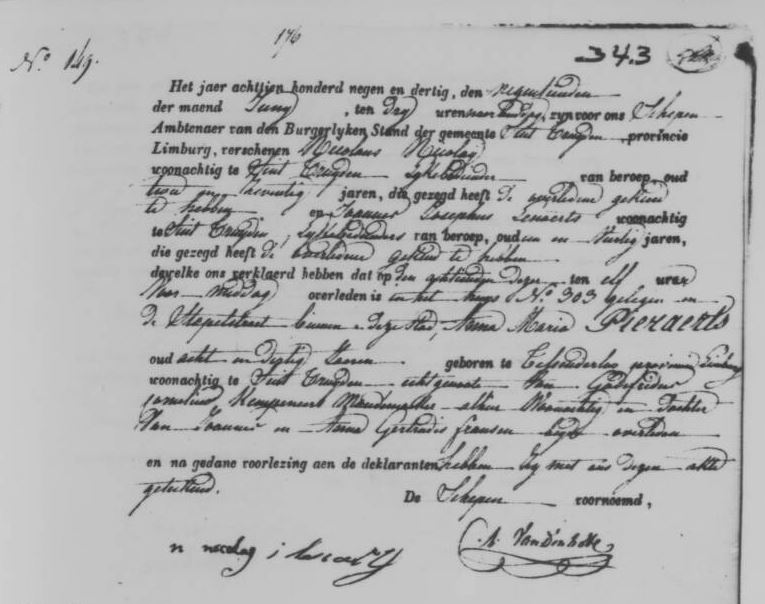 176
N.º 149.
343
Het jaer achttien honderd negen en dertig, den negentienden
der maend Juny, ten dry uren naer middag, zyn voor ons Schepen
Ambtenaer van den Burgerlyken Stand der gemeente Sint Truyden, provincie
Limburg, verschenen Nicolaus Nicolay
woonachtig te Sint Truyden lykbediender van beroep, oud
twee en zeventig jaren, die gezegd heeft de overledene gekend
te hebben en Joannes Josephus Lenaerts woonachtig
te Sint Truyden, van beroep, oud een en jaren,
die gezegd heeft de overledene gekend te hebben
dewelke ons verklaerd hebben dat op den achttienden dezer ten elf uren
Voor middag overleden is in het huys N.º 303 gelegen in
de Stapelstraet binnen deze stad, Anna Maria Pieraerts
oud acht en dertig Jaeren geboren te provincie Limburg
woonachtig te Sint Truyden echtgenote van Godefridus
Cornelius Kempeneers Mandemaker alhier Woonachtig en Dochter
Van Joannes en Anna Gertrudis fransen beyde overleden
en na gedane voorlezing aen de deklaranten hebben zy met ons dezen akte
geteekend.
De Schepen voornoemd,
n nicolay